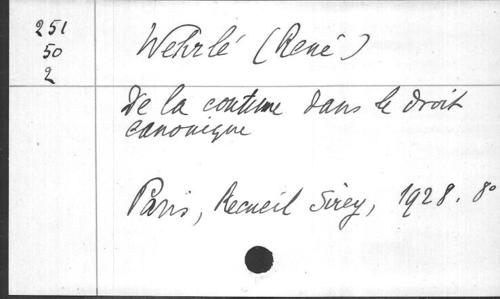 251
50
2
Wehrlé (René)
De la coutume dans le droit
canonique
Paris, Recueil Sirey, 1928. 8°